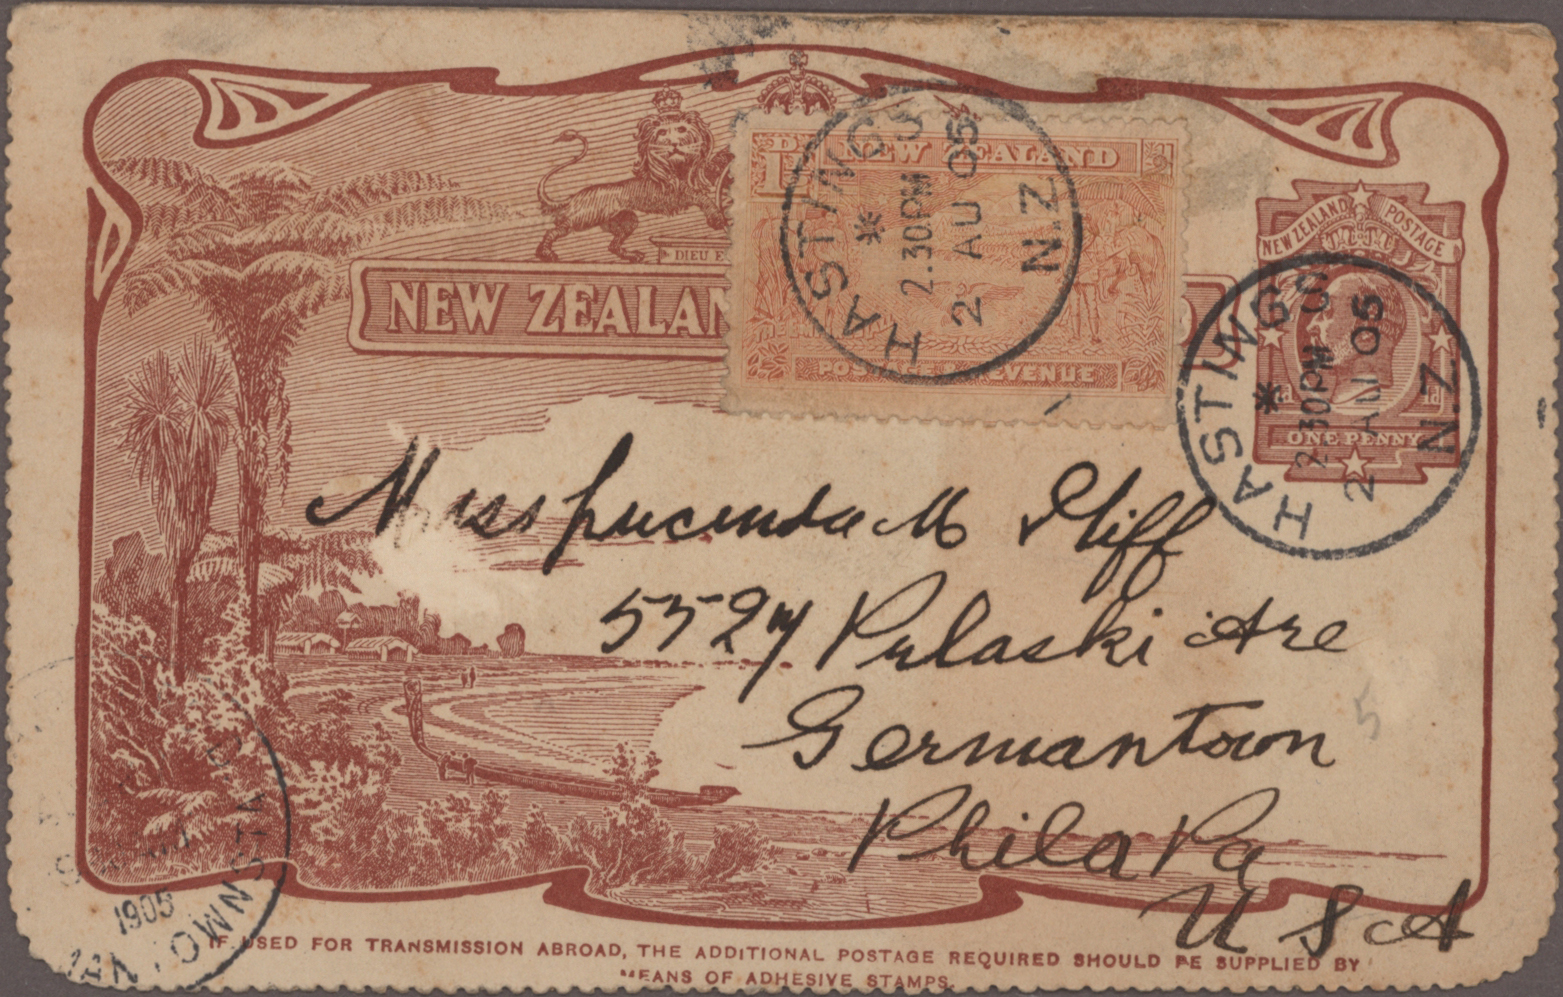 NEW ZEALAND
1D
POSTAGE & REVENUE
HASTINGS
2.30PM
2 AU 05
N.Z
DIEU E
NEW ZEALAN
NEW ZEALAND POSTAGE
1d 1d
ONE PENNY
HASTINGS
2 30PM
2 AU 05
N.Z
Miss Lucinda M Iliff
5527 Pulaski Ave
Germantown
Phila Pa
U S A
5
1905
IF USED FOR TRANSMISSION ABROAD, THE ADDITIONAL POSTAGE REQUIRED SHOULD BE SUPPLIED BY
MEANS OF ADHESIVE STAMPS.